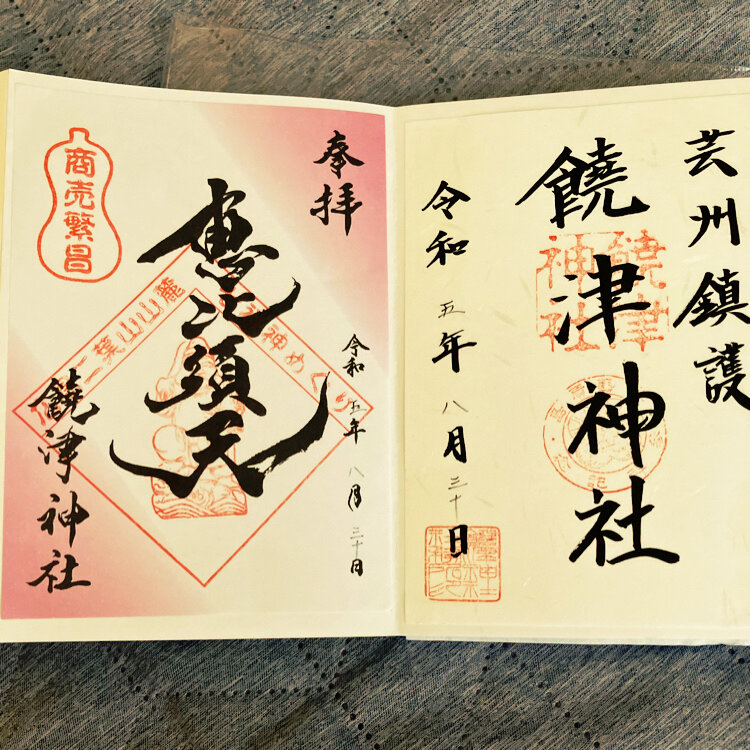 芸州鎮護
饒津神社
饒津神社
令和五年八月三十日
奉拝
恵比須天
商売繁昌
令和五年八月三十日
饒津神社